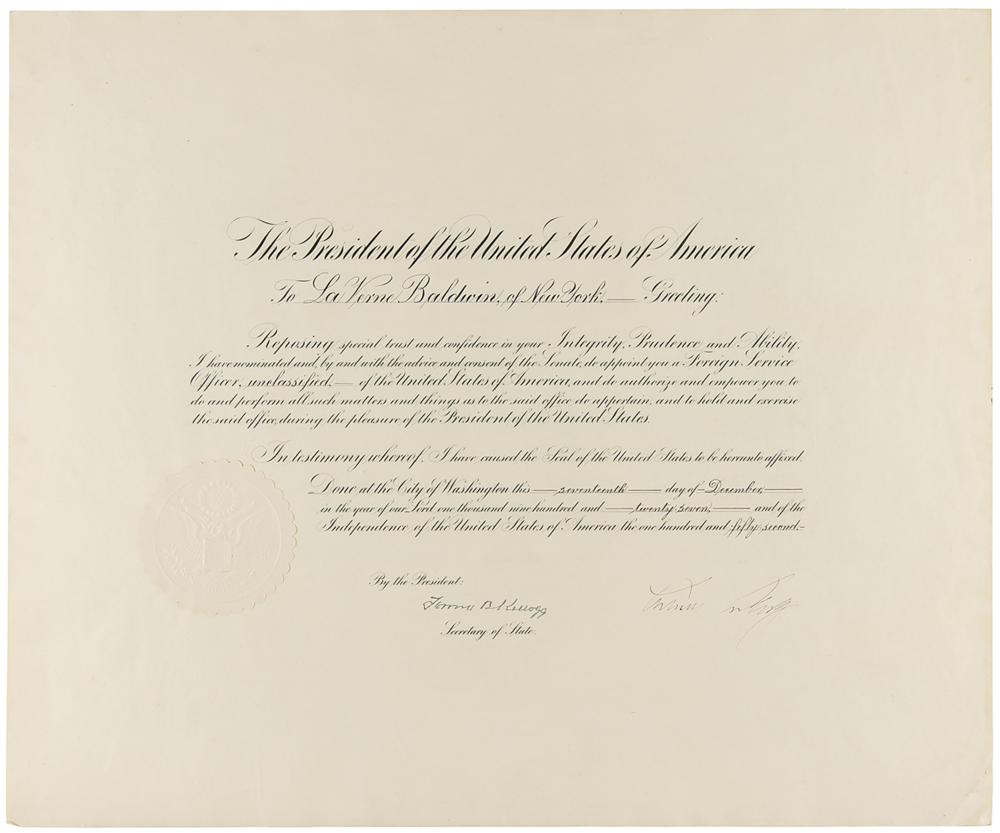 The President of the United States of America
To La Verne Baldwin, of New York, — Greeting:
Reposing special trust and confidence in your Integrity, Prudence and Ability,
I have nominated and, by and with the advice and consent of the Senate, do appoint you a Foreign Service
Officer, unclassified, — of the United States of America, and do authorize and empower you to
do and perform all such matters and things as to the said office do appertain, and to hold and exercise
the said office, during the pleasure of the President of the United States.
In testimony whereof, I have caused the Seal of the United States to be hereunto affixed.
Done at the City of Washington this — seventeenth — day of — December, —
in the year of our Lord one thousand nine hundred and — twenty seven, — and of the
Independence of the United States of America the one hundred and fifty second. —
By the President:
B. Kellogg
Secretary of State.